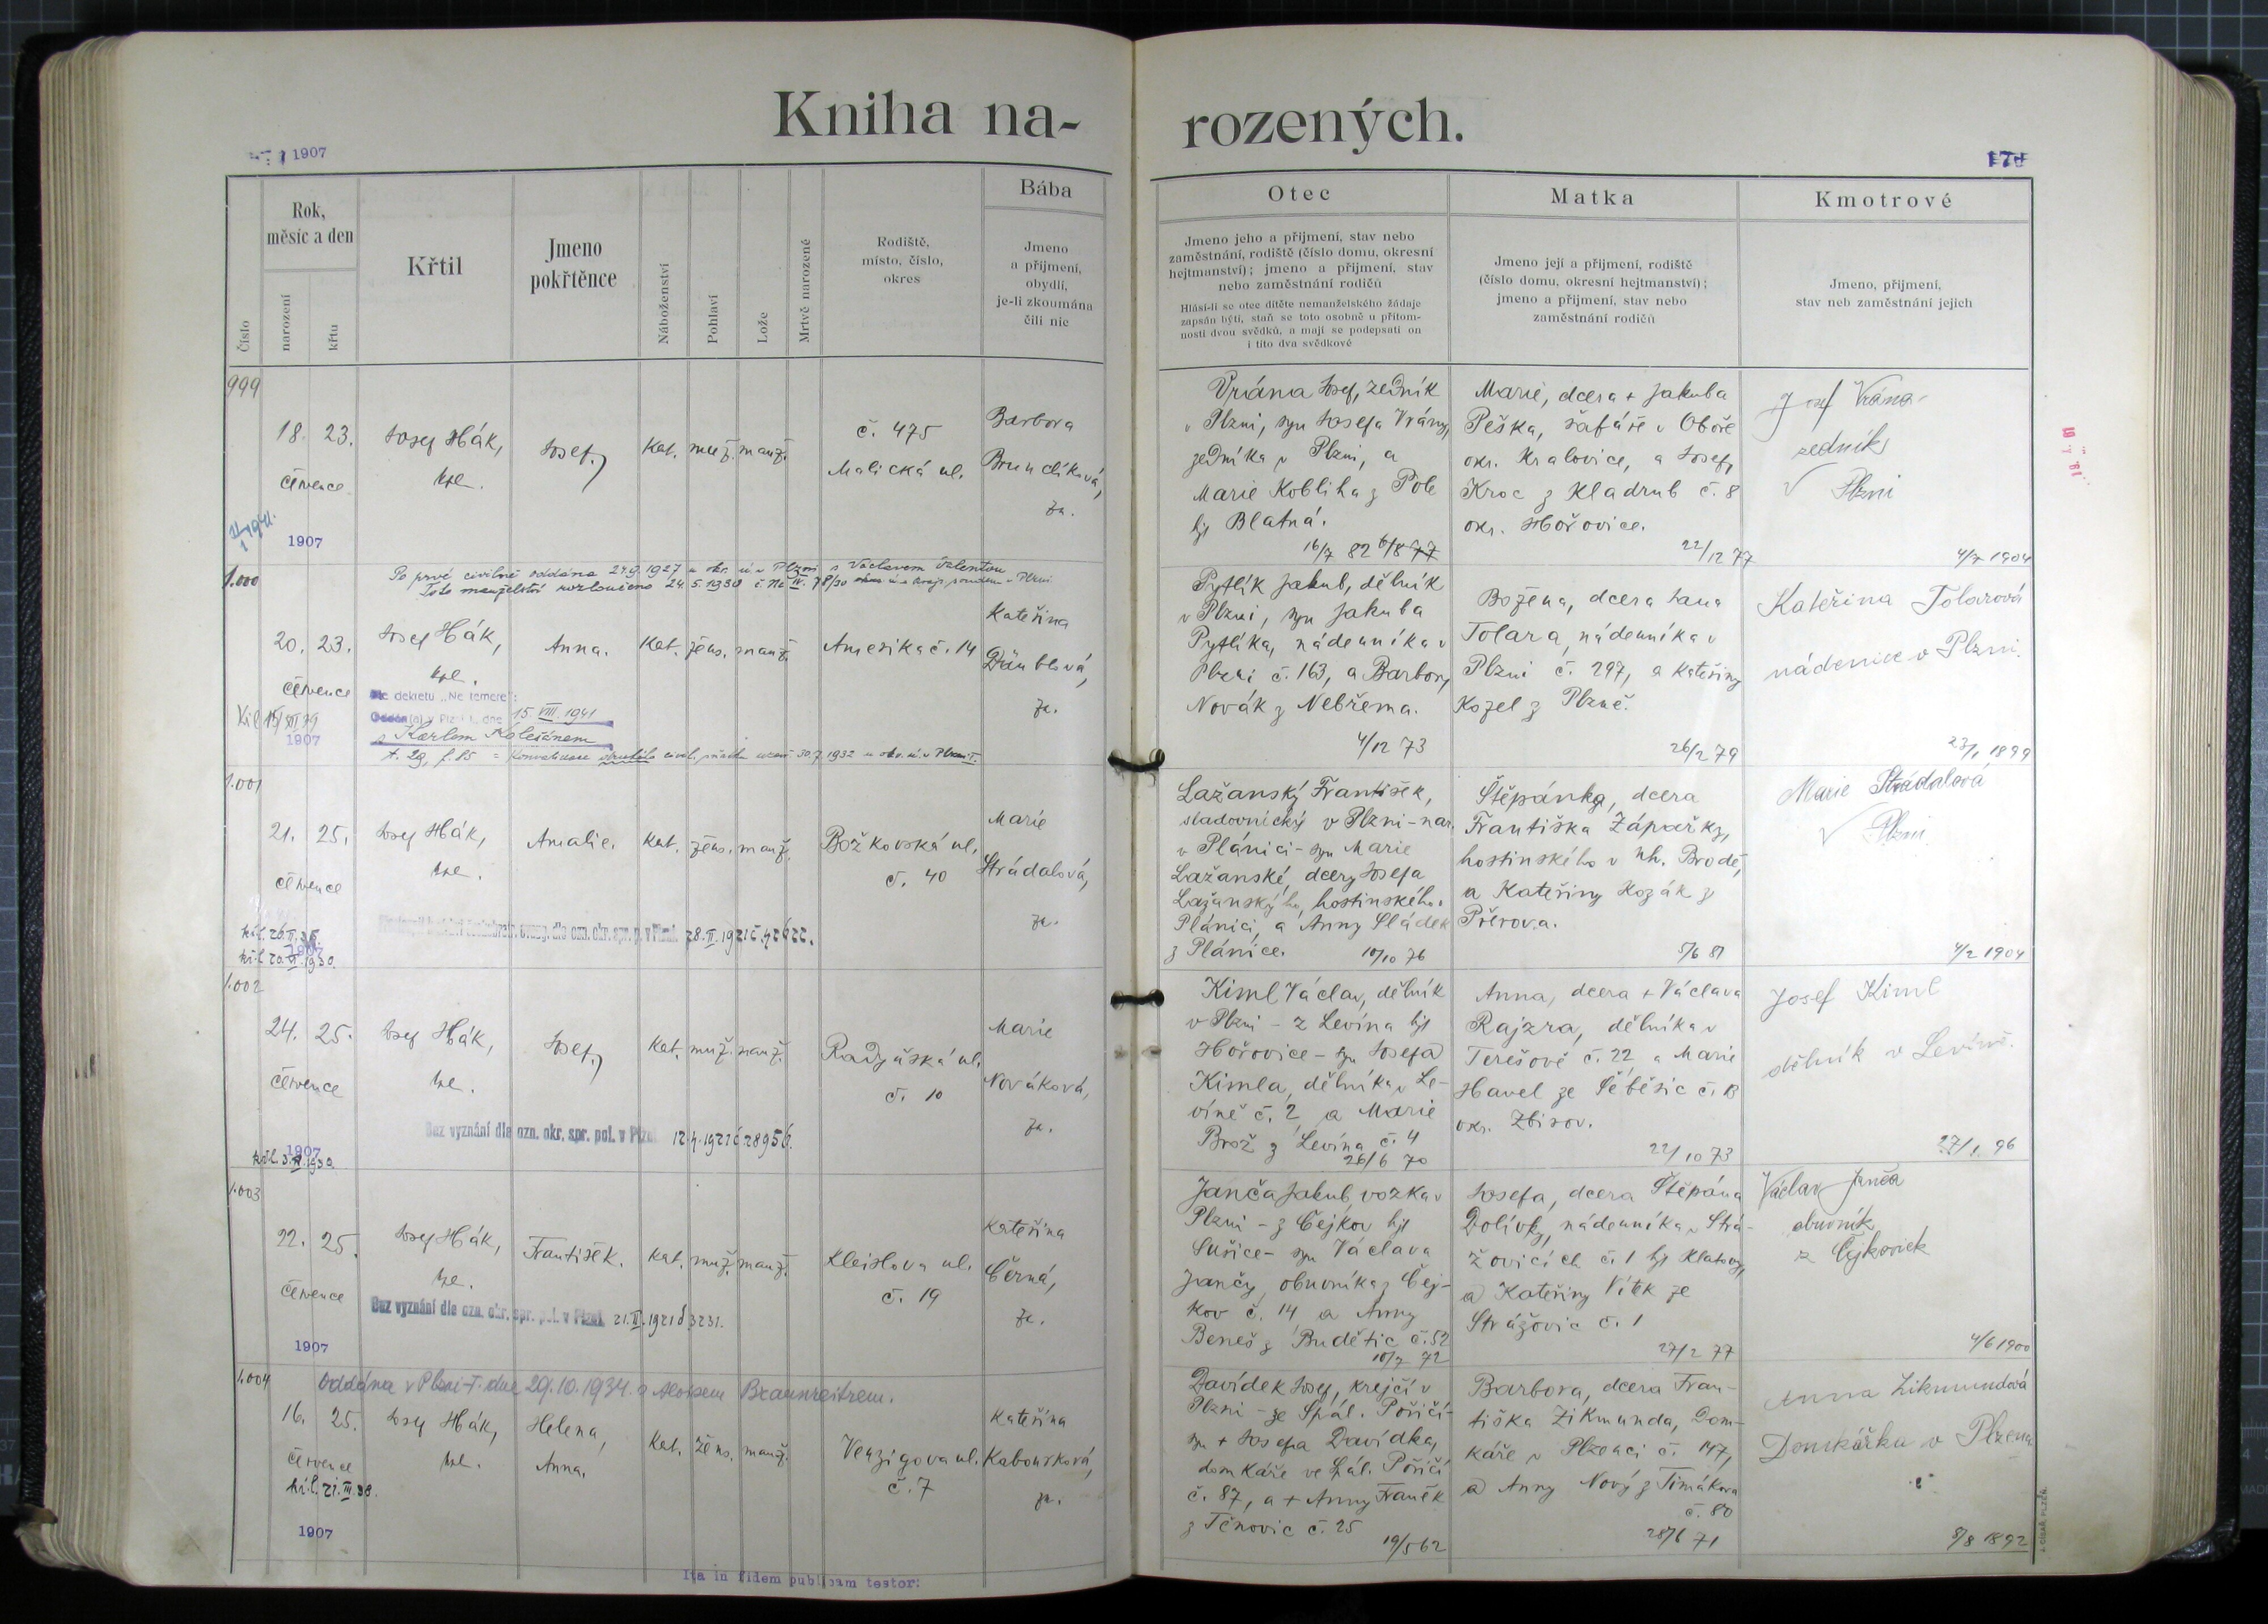 Kniha na-
rozených.
1907
Rok,
měsíc a den
Číslo
narození
křtu
Křtil
Jmeno
pokřtěnce
Náboženství
Pohlaví
Lože
Mrtvě narozené
Rodiště,
místo, číslo,
okres
Bába
Jmeno
a přijmení,
obydlí,
je-li zkoumána
čili nic
Otec
Jmeno jeho a přijmení, stav nebo
zaměstnání, rodiště (číslo domu, okresní
hejtmanství); jmeno a přijmení, stav
nebo zaměstnání rodičů
Hlásí-li se otec dítěte nemanželského žádaje
zapsán býti, staň se toto osobně u přítom-
nosti dvou svědků, a mají se podepsati on
i tito dva svědkové
Matka
Jmeno její a přijmení, rodiště
(číslo domu, okresní hejtmanství);
jmeno a přijmení, stav nebo
zaměstnání rodičů
Kmotrové
Jmeno, přijmení,
stav neb zaměstnání jejich
999
18. 23.
července
1907
Josef Hák,
kpl.
Josef.
Kat. muž. manž.
č. 475
Malická ul.
Barbora
Brunclíková,
zk.
Vrána Josef, zedník
v Plzni, syn Josefa Vrány,
zedníka v Plzni, a
Marie Kobliha z Pole
hjt Blatná.
16/7 82 6/8 77
Marie, dcera + Jakuba
Peška, šafáře v Oboře
okr. Kralovice, a Josefy
Kroc z Kladrub č. 8
okr. Hořovice.
22/12 77
Josef Vrána
zedník
v Plzni
4/7 1904
1.000
Po prvé civilně oddána 24.9.1927 u okr. ú. v Plzni s Václavem Valentou
Toto manželství rozloučeno 24.5.1930
20. 23.
července
1907
Josef Hák,
kpl.
Anna.
Kat. žens. manž.
Amerika č. 14
Kateřina
Düm­blová,
zk.
dle dekretu „Ne temere“:
Oddán(a) v Plzni I. dne 15. VIII. 1941
s Karlem Kolešánem
Pytlík Jakub, dělník
v Plzni, syn Jakuba
Pytlíka, nádenníka v
Plzni č. 163, a Barbory
Novák z Nebřema.
4/12 73
Božena, dcera Jana
Tolara, nádenníka v
Plzni č. 297, a Kateřiny
Kozel z Plzně.
26/2 79
Kateřina Tolarová
nádenice v Plzni.
23/1 1899
1.001
21. 25.
července
1907
Josef Hák,
kpl.
Amalie.
Kat. žens. manž.
Božkovská ul.
č. 40
Marie
Strádalová,
zk.
Lažanský František,
sladovnický v Plzni - nar.
v Plánici - syn Marie
Lažanské, dcery Josefa
Lažanského, hostinského v
Plánici, a Anny Sládek
z Plánice.
10/10 76
Štěpánka, dcera
Františka Zápařky,
hostinského v Uh. Brodě,
a Kateřiny Kozák z
Přerova.
5/6 81
Marie Strádalová
v Plzni
4/2 1904
1.002
24. 25.
července
1907
Josef Hák,
kpl.
Josef.
Kat. muž. manž.
Radyňská ul.
č. 10
Marie
Nováková,
zk.
Bez vyznání dle ozn. okr. spr. pol. v Plzni 12.4.1921 č. 28956.
Kiml Václav, dělník
v Plzni - z Levína hjt
Hořovice - syn Josefa
Kimla, dělníka v Le-
víně č. 2, a Marie
Brož z Levína č. 4
26/6 70
Anna, dcera + Václava
Rajzra, dělníka v
Terešově č. 22, a Marie
Havel ze Těbčic č. 13
okr. Zbirov.
22/10 73
Josef Kiml
dělník v Levíně.
27/1. 96
1.003
22. 25.
července
1907
Josef Hák,
kpl.
František.
Kat. muž. manž.
Kleislova ul.
č. 19
Kateřina
Černá,
zk.
Bez vyznání dle ozn. okr. spr. pol. v Plzni 21.II.1921 č 3231.
Janča Jakub, vozka v
Plzni - z Čejkov hjt
Sušice - syn Václava
Janči, obuvníka z Čej-
kov č. 14 a Anny
Beneš z Budětic č. 52
10/7 72
Josefa, dcera Štěpána
Dolívky, nádenníka v Strá-
žovicích č. 1 hjt Klatovy,
a Kateřiny Vítek ze
Strážovic č. 1
27/2 77
Václav Janča
obuvník
z Čejkovick
4/6 1900
1.004
Oddána v Plzni-I. dne 29.10.1934. s Aloisem Braunreitrem.
16. 25.
července
1907
Josef Hák,
kpl.
Helena,
Anna.
Kat. žens. manž.
Venzigova ul.
č. 7
Kateřina
Kabourková,
zk.
Davídek Josef, krejčí v
Plzni - ze Spál. Poříčí-
syn + Josefa Davídka,
domkáře ve Spál. Poříčí
č. 87, a + Anny Franěk
z Těnovic č. 25
19/5 62
Barbora, dcera Fran-
tiška Zikmunda, dom-
káře v Plzenci č. 147,
a Anny Nový z Timákova
č. 80
28/6 71
Anna Zikmundová
Domkářka v Plzenci
8/8 1892
Ita in fidem publicam testor: